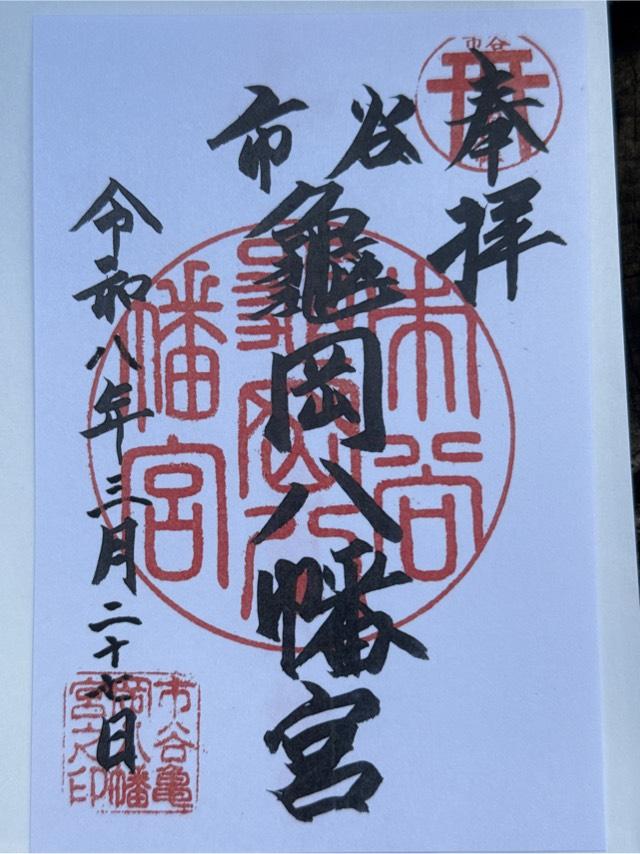 奉拝
市谷
市谷
亀岡八幡宮
市谷
亀岡八
幡宮
令和八年三月二十七日
市谷亀
岡八幡
宮之印